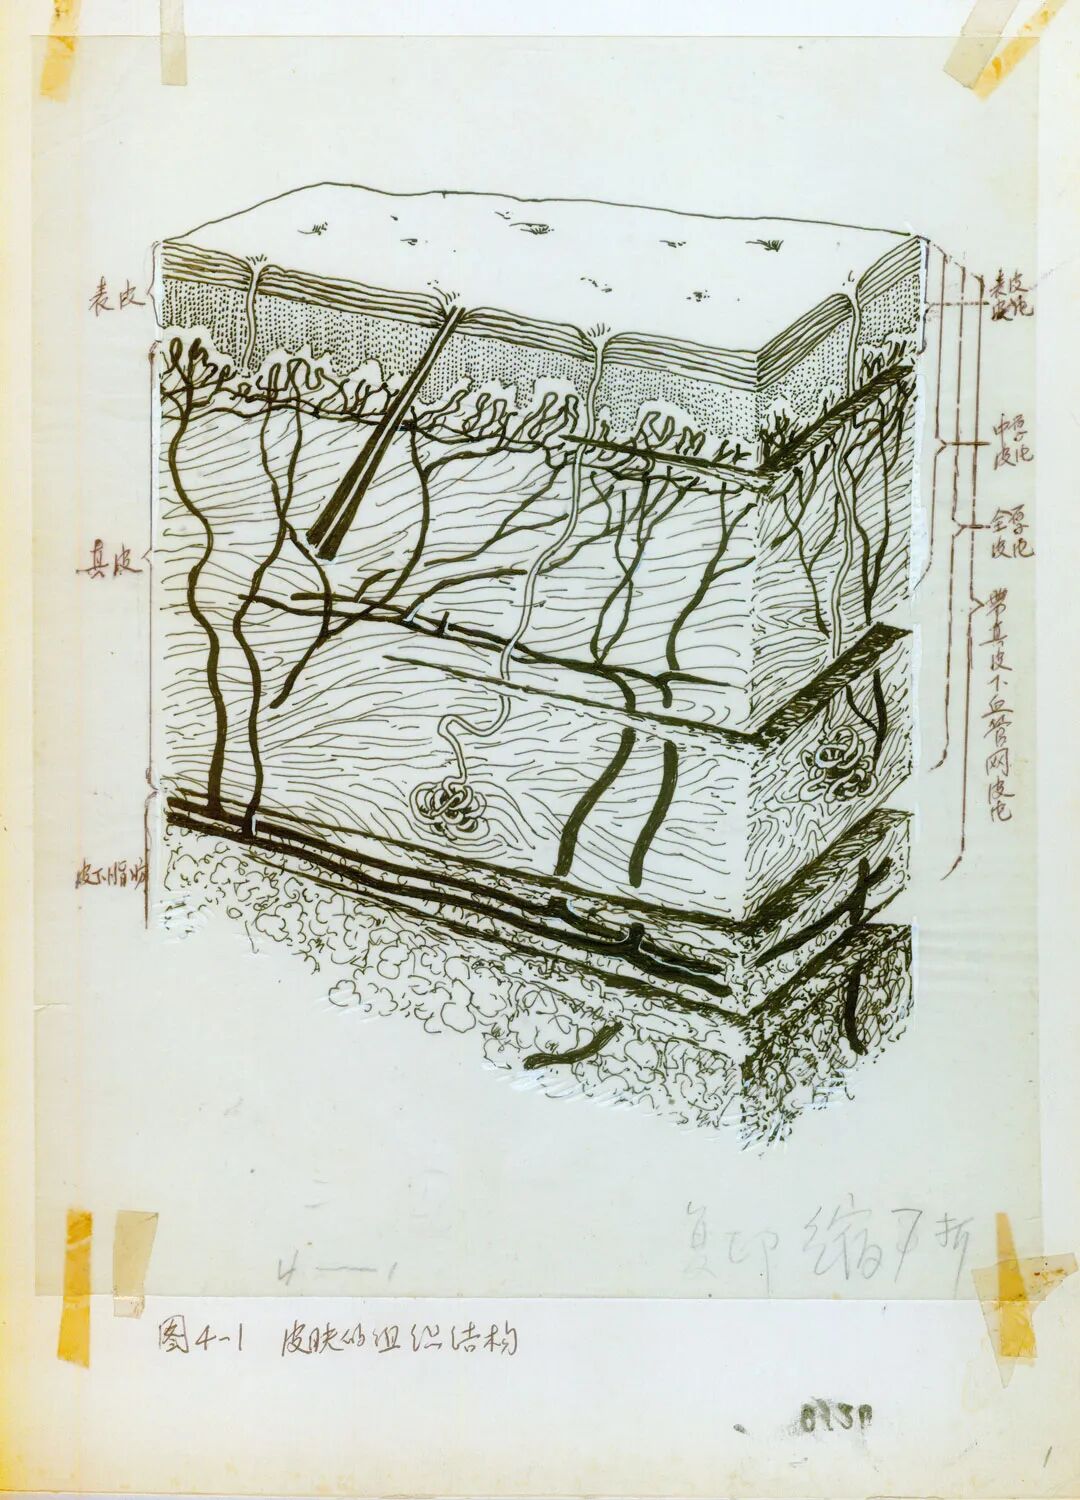 表皮
真皮
皮下脂肪
表皮
皮片
中厚
皮片
全厚
皮片
带真皮下血管网皮片
4—1
复印缩7折
图4-1 皮肤的组织结构
0130
1